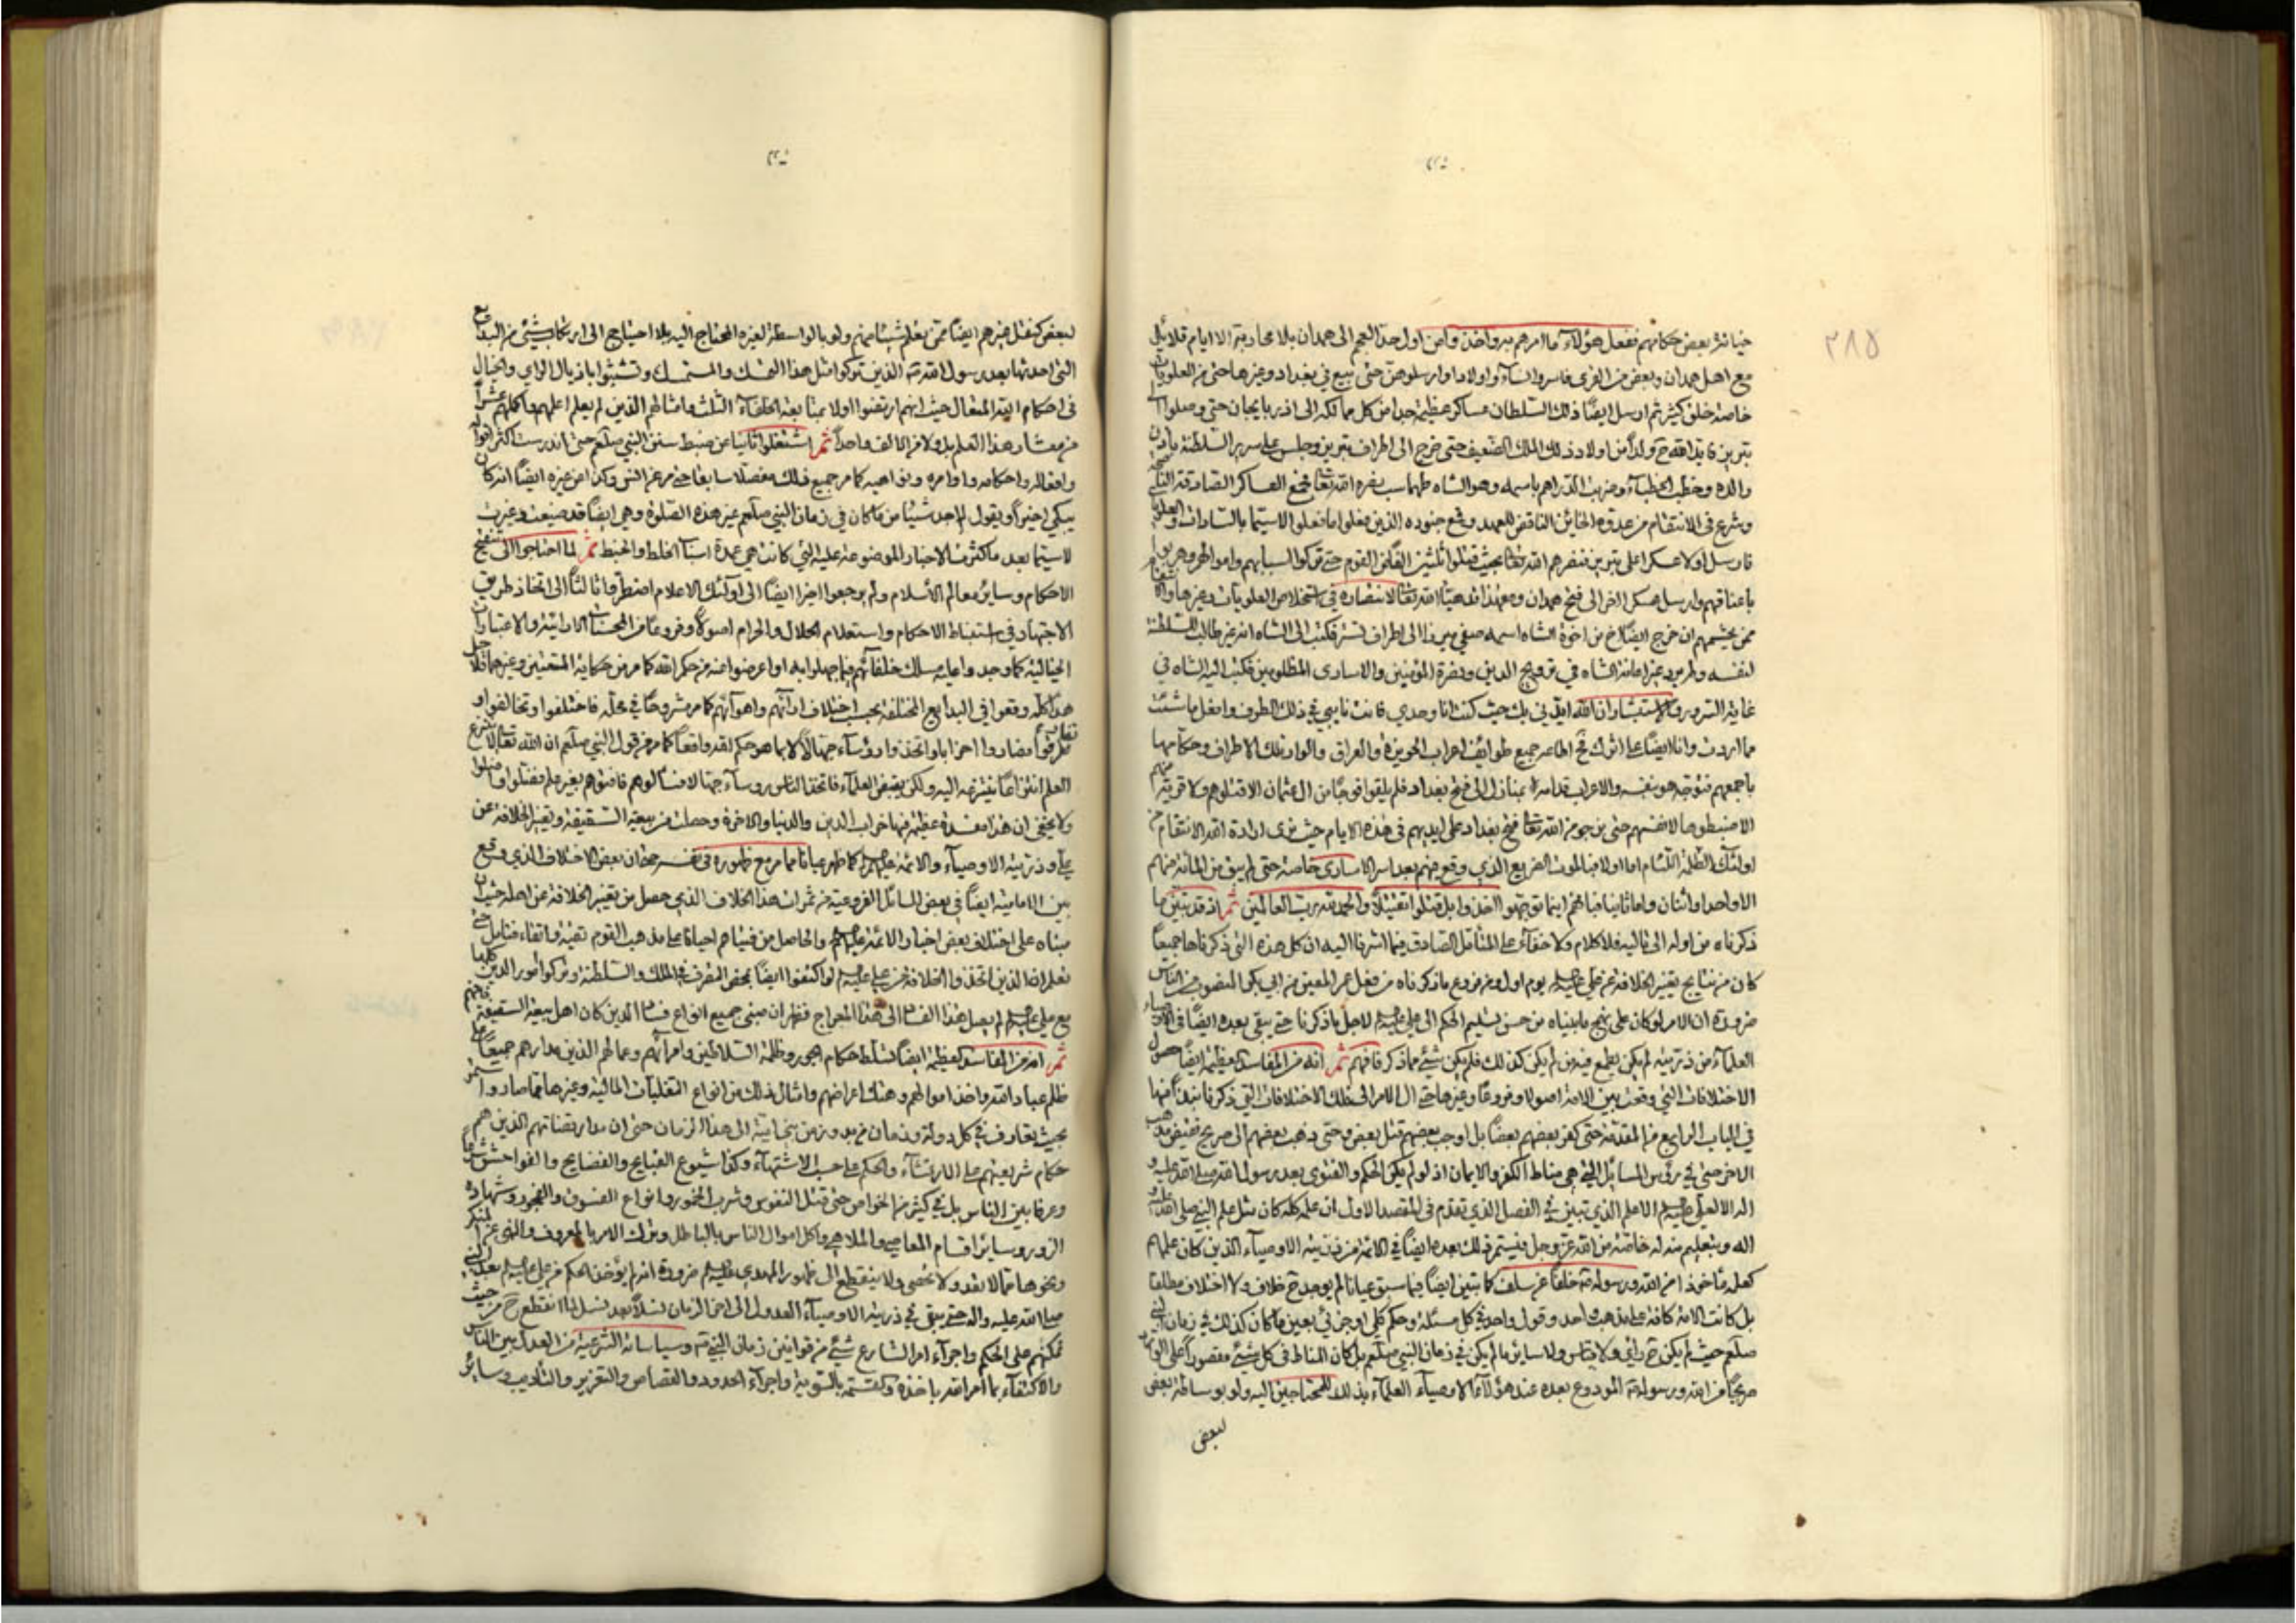 ٢٨٥
خيانة بعض حكامهم ففعل هؤلاء ما امرهم به واخذ وامن اول حد العجم الى همدان بلا محاربة الا ايام قلايل
مع اهل همدان وبعض من القرى فاسروا النساء والاولاد وارسلوهن حتى بيع في بغداد وغيرها حتى من العلويات
خاصة خلق كثير ثم ارسل ايضا ذلك السلطان عساكر عظيمة جدا من كل ممالكه الى اذربايجان حتى وصلوا الى
تبريز فايد الله ح ولدا من اولاد ذلك الملك الضعيف حتى خرج الى اطراف تبريز وجلس على سرير السلطنة باذن
والده وخطب الخطباء وضرب الدراهم باسمه وهو الشاه طهماسب نصره الله تعالى فجمع العساكر الصادقة
وشرع في الانتقام من عدوه الخائن الناقض للعهد ومع جنوده الذين فعلوا ما فعلوا لا سيما بالسادات والعلويات
فارسل اولا عسكرا على تبريز فنصرهم الله تعالى بحيث قتلوا ثلثين الفا من القوم حتى تركوا اسبابهم واموالهم
باعناقهم وارسل عسكرا اخر الى فتح همدان ومعهذا قد هيأ الله تعالى لانتصاره في استخلاص العلويات وغيرها
ممن يحشمهم ان خرج ايضا اخ من اخوة الشاه اسمه صفي ميرزا الى اطراف تستر فكتب الى الشاه انه غير طالب للسلطنة
لنفسه ولم يرد غير اعانة الشاه في ترويج الدين ونصرة المؤمنين والاسارى المظلومين فكتب اليه الشاه في
غاية السرور والاستبشار ان الله ايدني بك حيث كنت انا وحدي فانت نايبي في ذلك الطرف وافعل ما شئت
مما اردت وانا ايضا على اثرك فح اطاعه جميع طوايف اعراب الحويزة والعراق والوار تلك الاطراف وحكامها
باجمعهم فتوجه هو بنفسه والاعراب قدامه الى فتح بغداد فلم يلقوا فوجا من ال عثمان الا قتلوهم ولا قرية
الا ضبطوها لانفسهم حتى نرجو من الله تعالى فتح بغداد على ايديهم في هذه الايام حيث نرى ارادة الله الانتقام من
اولئك الظلمة اللئام اما اولا فبالموت الفريع الذي وقع منهم بعد اسر الاسارى خاصة حتى لم يبق من المائة منهم
الا واحد او اثنان واما ثانيا فبانهم اينما توجهوا اخذوا بل قتلوا تقتيلا والحمد لله رب العالمين ثم اذ قد تبين ما
ذكرناه من اوله الى تاليه فلا كلام ولا خفاء على المتأمل الصادق فيما اشرنا اليه ان كل هذه التي ذكرناها جميعا
كان من نتايج تغيير الخلافة عن علي عليه السلم يوم اول ومن فروع ما ذكرناه من فعل عمر المعين من ابي بكر المنصوب من الناس
ضرورة ان الامر لو كان على نهج ما بيناه من حسن تسليم الحكم الى علي عليه السلم لاجل ما ذكرنا حتى يبقى بعده ايضا في الاوصياء
العلماء من ذريته لم يكن يطمع فيه من لم يكن كذلك فلم يكن شيء مما ذكر فافهم ثم انه من المفاسد العظيمة ايضا حصول
الاختلافات التي وقعت بين الامة اصولا وفروعا وغيرها حتى ال الامر الى تلك الاختلافات التي ذكرنا نبذا منها
في الباب الرابع من المقدمة حتى كفر بعضهم بعضا بل اوجب بعضهم قتل بعض وحتى ذهب بعضهم الى صريح نقيض مذهب
الاخر حتى في رؤس المسائل التي هي مناط الكفر والايمان اذ لو لم يكن الحكم والفتوى بعد رسول الله صلى الله عليه و
اله الا لعلي عليه السلم الاعلم الذي تبين في الفصل الذي تقدم في المقصد الاول ان علمه كله كان مثل علم النبي صلى الله عليه و
اله وبتعليم منه له خاصة من الله عز وجل فيستمر ذلك بعده ايضا في الائمة من ذريته الاوصياء الذين كان علمهم
كعلمه مأخوذا من الله ورسوله خلفا عن سلف كما تبين ايضا فيما سبق عيانا لم يوجد ح خلاف ولا اختلاف مطلقا
بل كانت الامة كافة على مذهب واحد وقول واحد في كل مسئلة وحكم كلي او جزئي بعين ما كان كذلك في زمان النبي
صلعم حيث لم يكن ح رأي ولا قياس ولا ساير ما لم يكن في زمان النبي صلعم بل كان المناط في كل شيء مقصورا على الوارد
صريحا من الله ورسوله المودوع بعده عند هؤلاء الاوصياء العلماء بذلك للمحتاجين اليه ولو بوساطة بعض
لبعض
لبعض كنقل غيرهم ايضا ممن يعلم شيئا منهم ولو بالواسطة لغيره المحتاج اليه بلا احتياج الى ارتكاب شيء من البدايع
التي احدثها بعد رسول الله الذين تركوا مثل هذا التمسك والمستمسك وتشبثوا باذيال الراي والخيال
في احكام ايزد المتعال حيث انهم ارتضوا اولا بمتابعة الخلفاء الثلث وامثالهم الذين لم يعلم اعلمهم واكملهم عشرا
من معشار هذا التعليم بل ولا من الالف واحدا ثم اشتغلوا ثانيا عن ضبط سنن النبي صلعم حتى اندرست اكثر اقواله
وافعاله واحكامه واوامره ونواهيه كما مر جميع ذلك مفصلا سابقا حتى مر عن انس وكذا عن غيره ايضا انه كان
يبكي اخيرا ويقول لم اجد شيئا من ما كان في زمان النبي صلعم غير هذه الصلوة وهي ايضا قد ضيعت وغيرت
لا سيما بعد ما كثرت الاخبار الموضوعة عليه التي كانت هي عمدة اسباب الخلط والخبط ثم لما احتاجوا الى تنقيح
الاحكام وساير معالم الاسلام ولم يرجعوا اخيرا ايضا الى اولئك الاعلام اضطروا ثالثا الى اتخاذ طريق
الاجتهاد في استنباط الاحكام واستعلام الحلال والحرام اصولا وفروعا من المحسنات الارائية والاعتبارات
الخيالية كما وجدوا عليه مسلك خلفائهم فيما جهلوا به او اعرضوا عنه من حكم الله كما مر من حكاية المتعتين وغيرهما فلاجل
هذا كله وقعوا في البدايع المختلفة بحسب اختلاف ارائهم واهوائهم كما مر مشروحا في محله فاختلفوا وتخالفوا و
تفرقوا فصاروا احزابا واتخذوا رؤساء جهالا لا بما هو حكم الله واقعا كما مر من قول النبي صلعم ان الله تعالى لا ينتزع
العلم انتزاعا ينتزعه اليه ولكن يقبض العلماء فاتخذ الناس رؤساء جهالا فسألوهم فافتوهم بغير علم فضلوا واضلوا
ولا يخفى ان هذا مفسدة عظيمة فيها خراب الدين والدنيا والاخرة وحصلت من بيعة السقيفة وتغيير الخلافة عن
علي وذريته الاوصياء والائمة عليهم السلم كما ظهر عيانا مما مر مع ظهوره في نفسه حتى ان بعض الاختلاف الذي وقع
بين الامامية ايضا في بعض المسائل الفروعية من ثمرات هذا الخلاف الذي حصل من تغيير الخلافة عن اهله حيث ان
مبناه على اختلاف بعض اخبار الائمة عليهم السلم والحاصل من فتياهم احيانا على مذهب القوم تقية واتقاء فتأمل حتى
تعلم ان الذين اتخذوا الخلافة من علي عليه السلم لو اكتفوا ايضا بمحض التصرف في الملك والسلطنة وتركوا امور الدين كلها
مع علي عليه السلم لم يصل هذا الفساد الى هذا المعراج فظهر ان مبنى جميع انواع فساد الدين كان اهل بيعة السقيفة فافهم
ثم انه من المفاسد العظيمة ايضا تسلط حكام الجور وظلمة السلاطين وامرائهم وعمالهم الذين مدارهم جميعا على
ظلم عباد الله واخذ اموالهم وهتك اعراضهم وامثال ذلك من انواع التغلبات المالية وغيرها مما صار واستمر
بحيث تعارف في كل دولة وزمان من بدو زمن بني امية الى هذا الزمان حتى ان مدار قضاتهم الذين هم
حكام شريعتهم على الارتشاء والحكم على حسب الاشتهاء وكذا شيوع القبايح والفضايح والفواحش شرعا
وعرفا بين الناس بل في كثير من الخواص حتى قتل النفوس وشرب الخمور وانواع الفسوق والفجور وشهادة
الزور وساير اقسام المعاصي والملاهي واكل اموال الناس بالباطل وترك الامر بالمعروف والنهي عن المنكر
ونحوها مما لا يعد ولا يحصى ولا ينقطع الى ظهور المهدي عليه السلم ضرورة انه لو لم يؤخذ الحكم من علي عليه السلم بعد النبي
صلى الله عليه واله حتى يبقى في ذريته الاوصياء العدول الى اخر الزمان نسلا بعد نسل لما انقطع ح من حيث
تمكنهم على الحكم واجراء امر الشارع شيء من قوانين زمان النبي وسياساته الشرعية من العدل بين الناس
والاكتفاء بما امر الله باخذه وكقسمته بالسوية واجراء الحدود والقصاص والتعزير والتأديب وساير